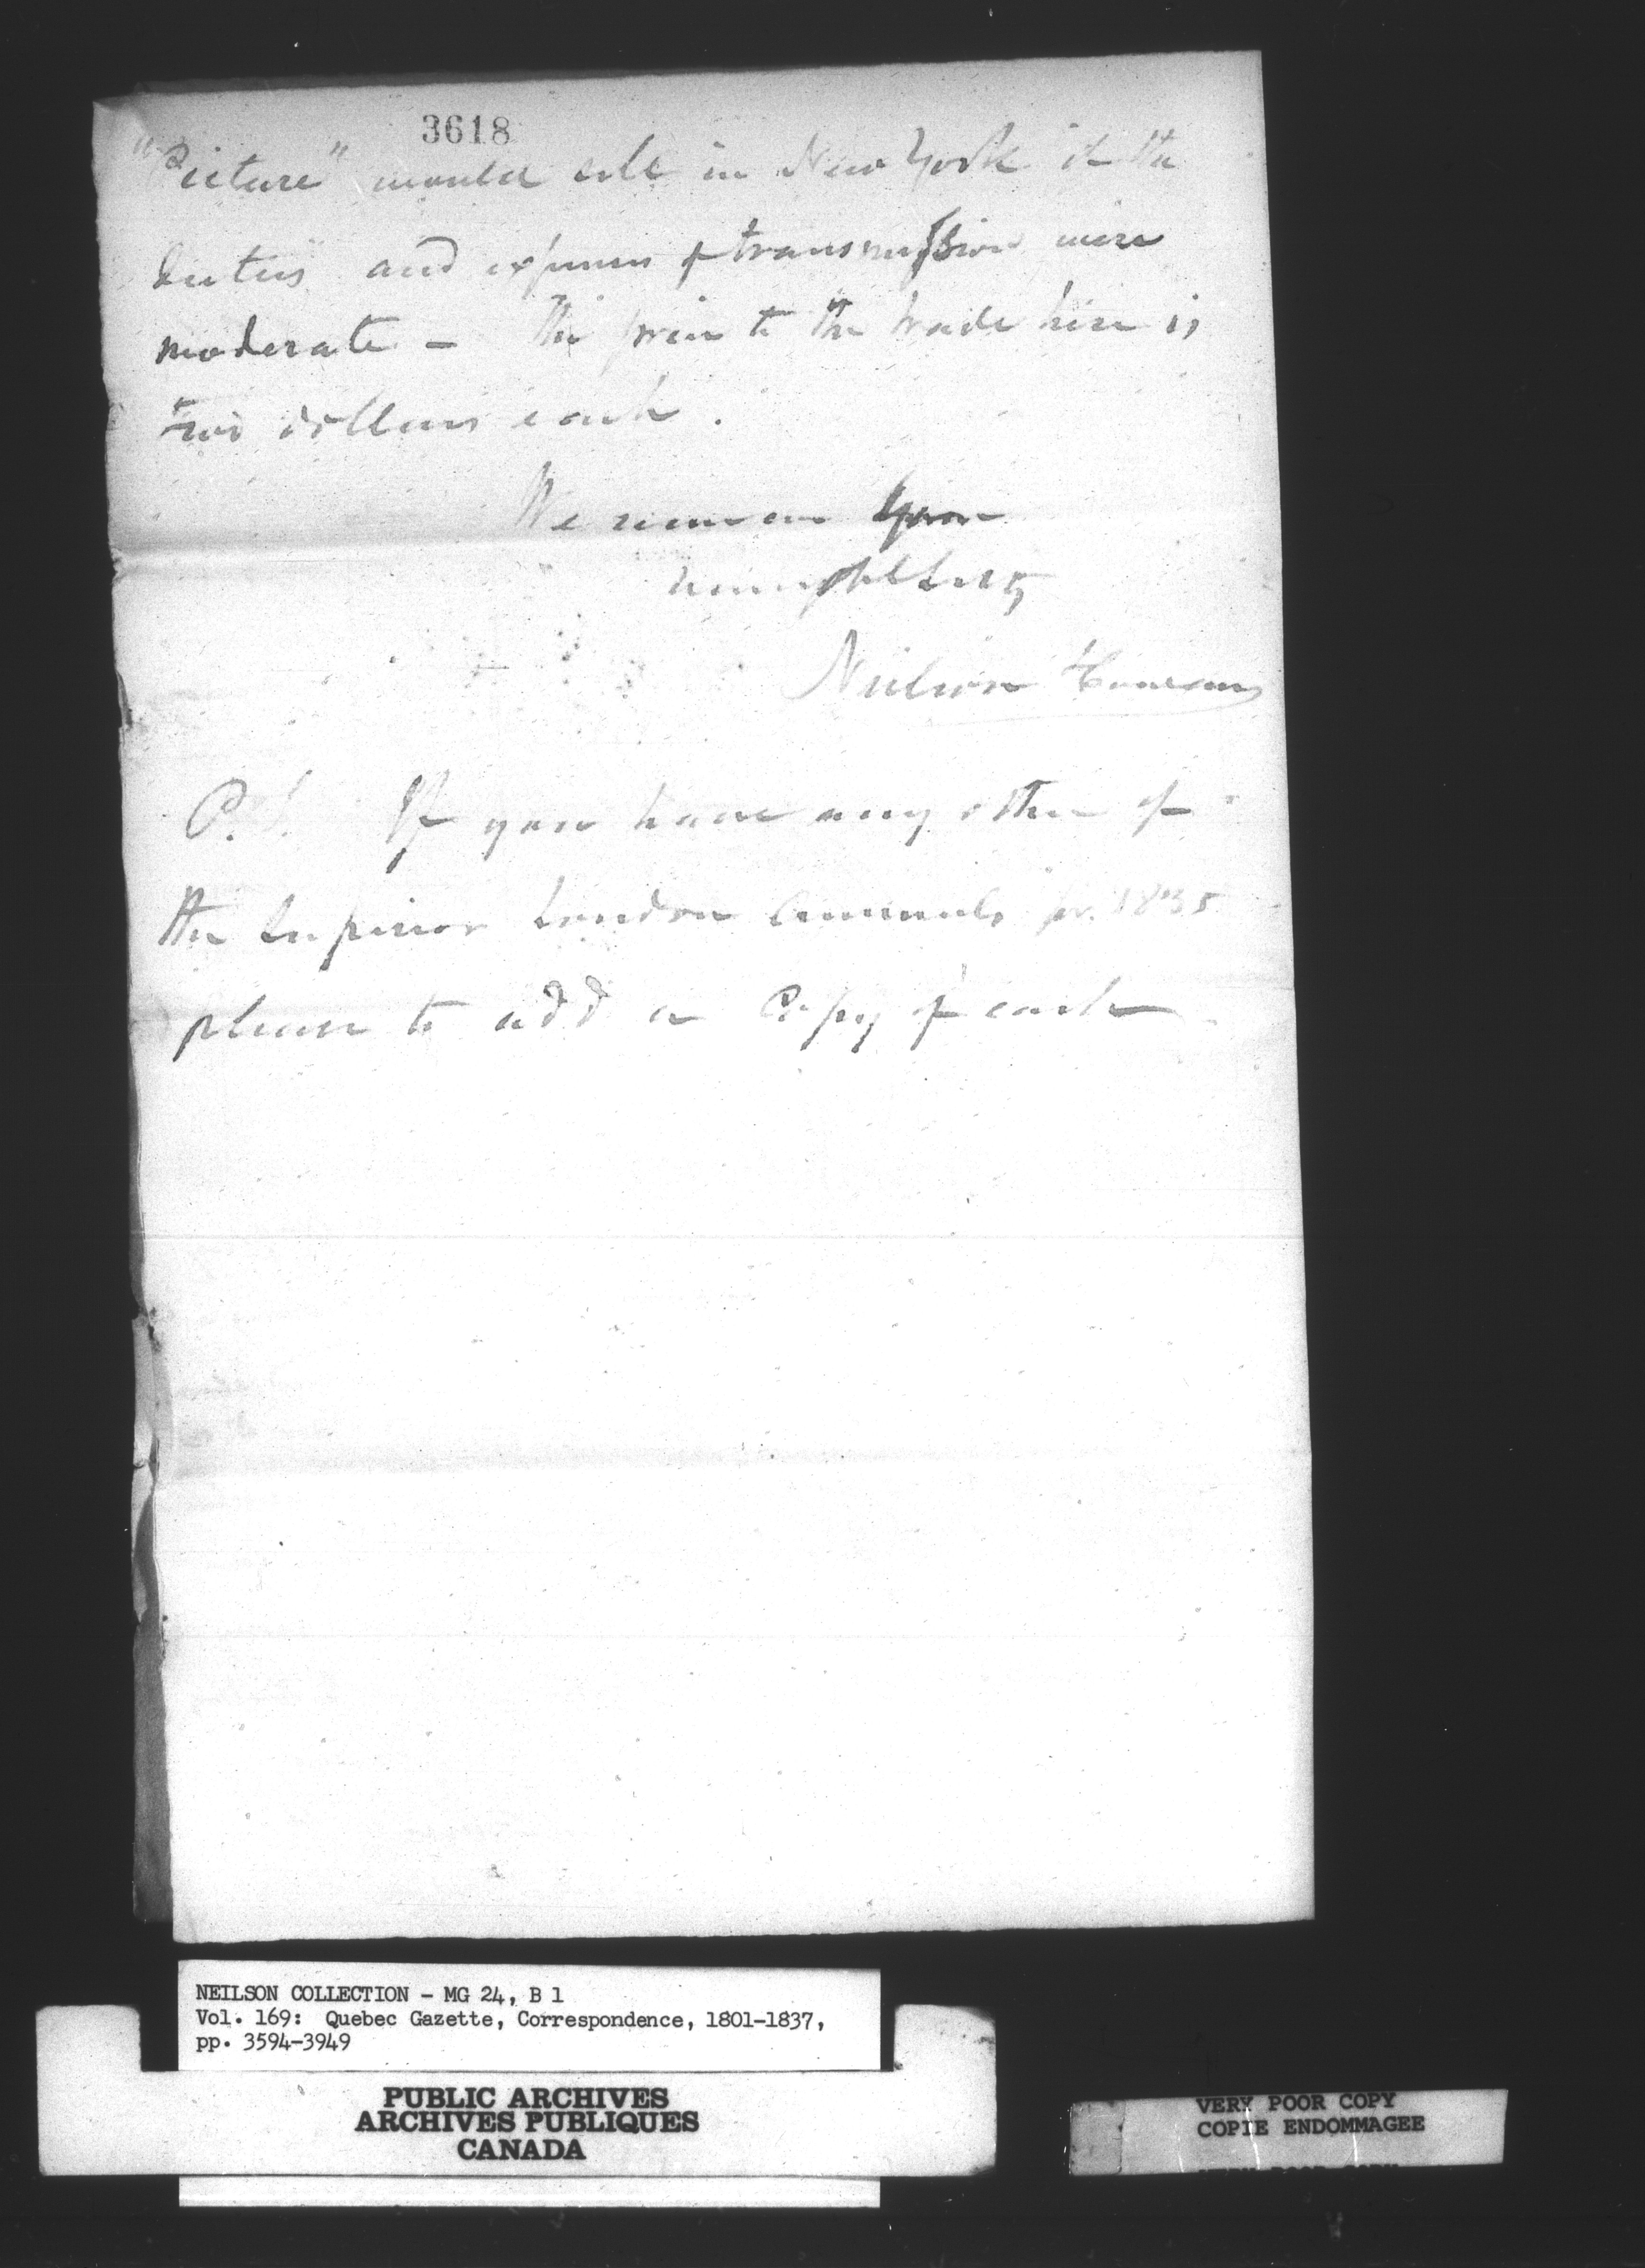 3618
"Picture" would sell in New York if the
duties and expenses of transmission were
moderate – The price to the trade here is
two dollars each.
We remain Your
humble Servts
Neilson & Cowan
P.S. If you have any other of
the superior London Annuals for 1835
please to add a Copy of each
NEILSON COLLECTION - MG 24, B 1
Vol. 169: Quebec Gazette, Correspondence, 1801-1837,
pp. 3594-3949
PUBLIC ARCHIVES
ARCHIVES PUBLIQUES
CANADA
VERY POOR COPY
COPIE ENDOMMAGEE